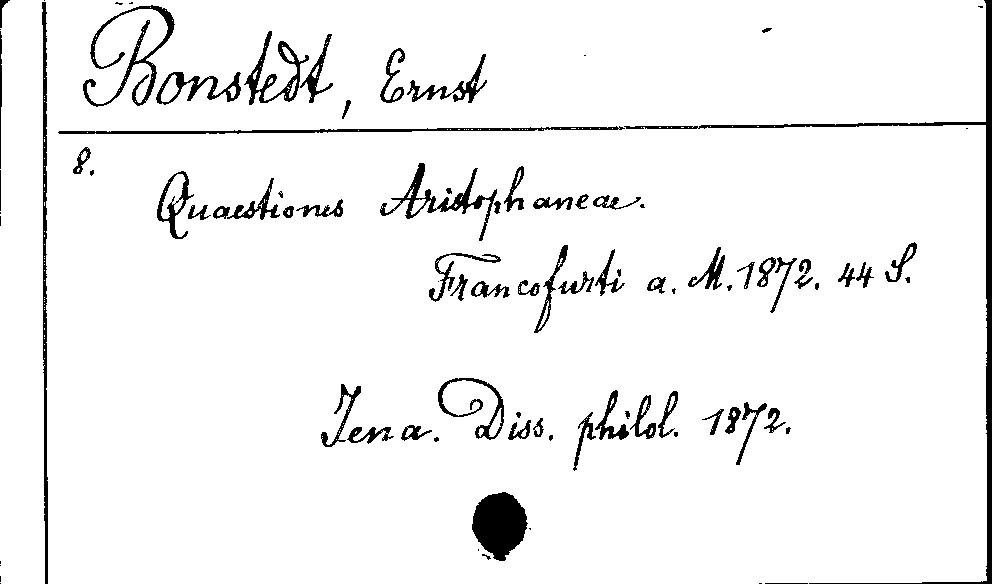 Bonstedt, Ernst
8.
Quaestiones Aristophaneae.
Francofurti a. M. 1872. 44 S.
Jena. Diss. philol. 1872.